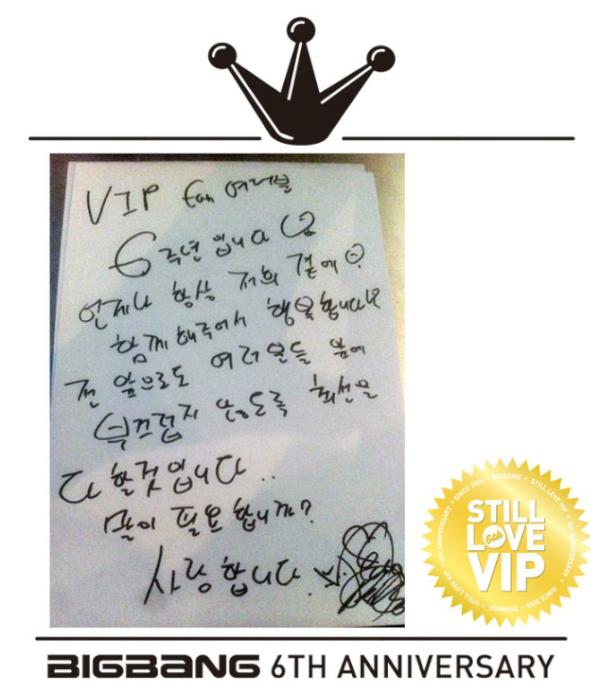 VIP fan 여러분
6주년입니다
언제나 항상 저희 곁에
함께 해주어서 행복합니다
전 앞으로도 여러분들 앞에
부끄럽지 않도록 최선을
다 할것입니다..
말이 필요합니까?
사랑합니다.
STILL
LOVE
6th
VIP
BIGBANG 6TH ANNIVERSARY